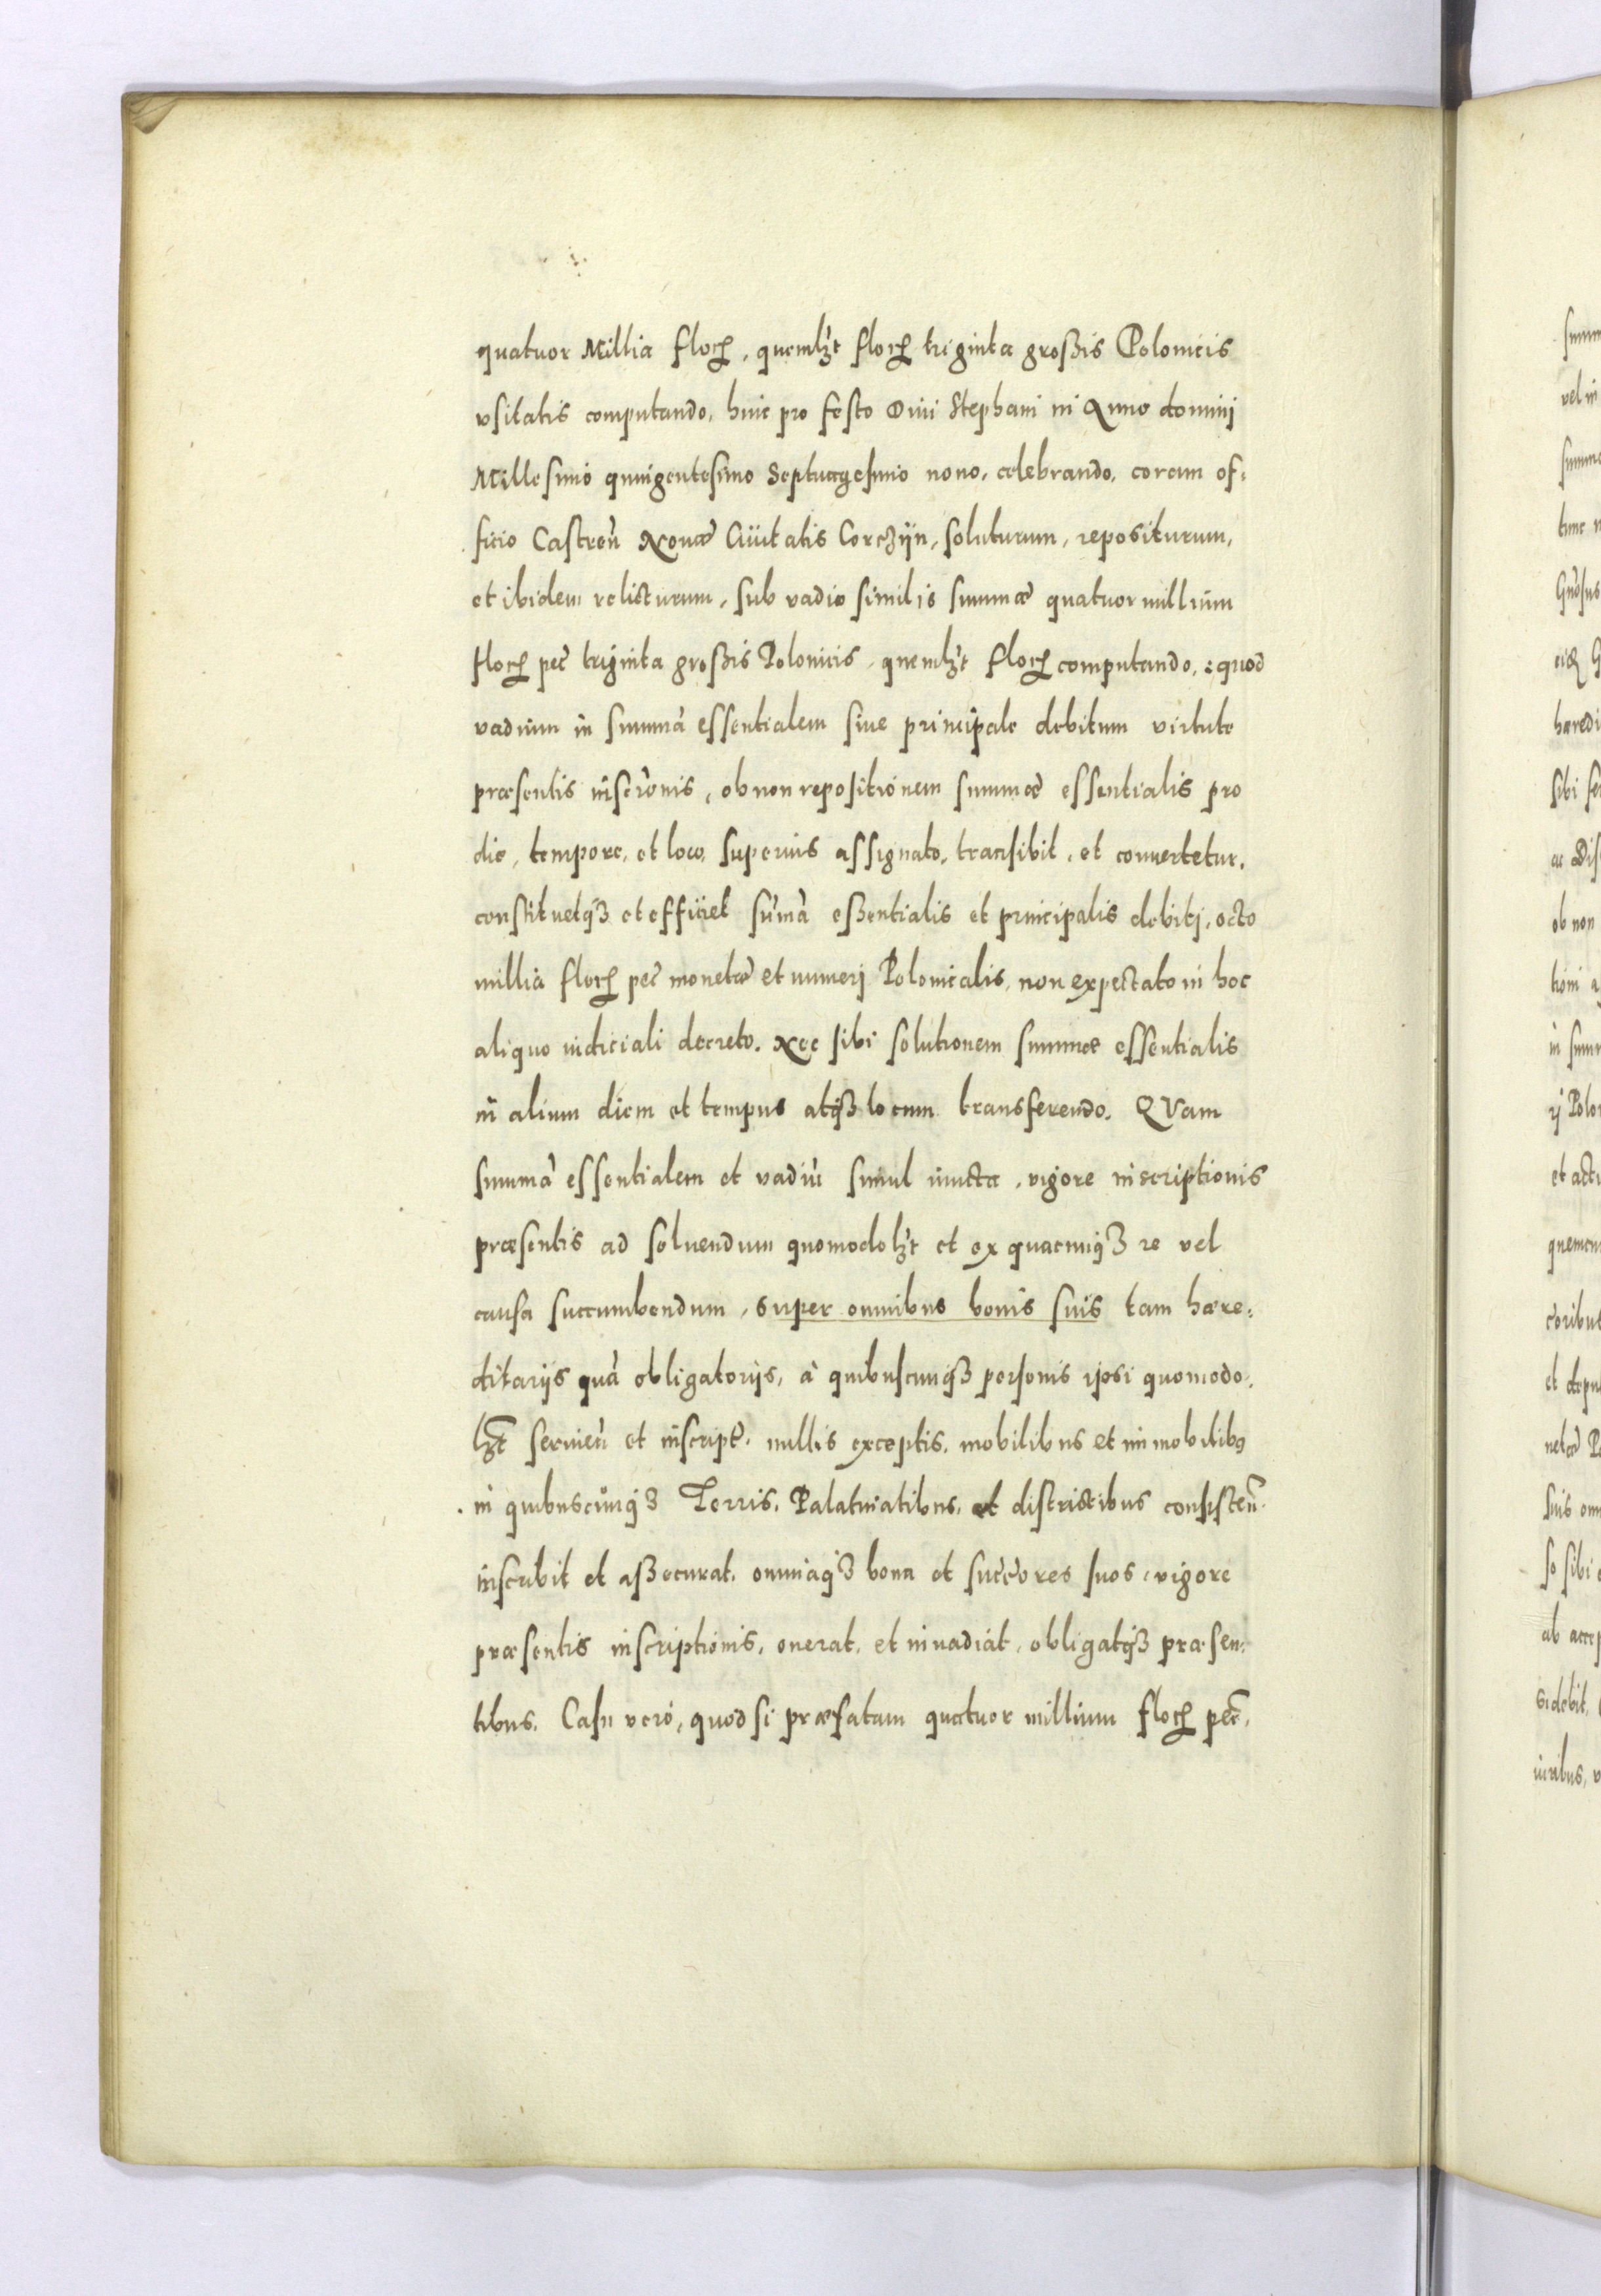 quatuor Millia floꝝ, quemlꝫt floꝝ triginta großis Polonicis
vsitatis computando, hinc pro festo Diui Stephani in Anno dominj
Millesimo quingentesimo Septuagesimo nono, celebrando, coram of:
ficio Castreñ Nouæ Ciuitatis Corczijn, soluturum, repositurum,
et ibidem relicturum, sub vadio similis summæ quatuor millium
floꝝ pec̃ triginta großis Polonicis, quemlꝫt floꝝ computando, quod
vadium in summã essentialem siue principale debitum virtute
præsentis inscrõnis, ob non repositionem summæ essentialis pro
die, tempore, et loco, superius assignato, transibit, et conuertetur,
constituetqꝫ et efficiet sum̃ã eßentialis et principalis debitj, octo
millia floꝝ pec̃ monetæ et numerj Polonicalis, non expectato in hoc
aliquo iudiciali decreto. Nec sibi solutionem summæ essentialis
in alium diem et tempus atqꝫ locum transferendo. QVam
summã essentialem et vadiũ simul iuncta, vigore inscriptionis
præsentis ad soluendum quomodolꝫt et ex quacunqꝫ re vel
causa succumbendum, super omnibus bonis suis tam hære:
ditarijs quã obligatorijs, à quibuscunqꝫ personis ipsi quomodo:
lꝫt seruieñ et inscript̃. nullis exceptis, mobilibus et immobilibꝰ
in quibuscunqꝫ Terris, Palatinatibus, et districtibus consisteñ.
inscribit et aßecurat, omniaqꝫ bona et succ̃ores suos, vigore
præsentis inscriptionis, onerat, et inuadiat, obligatqꝫ præsen:
tibus. Casu verò, quod si præfatam quatuor millium floꝝ pec̃,